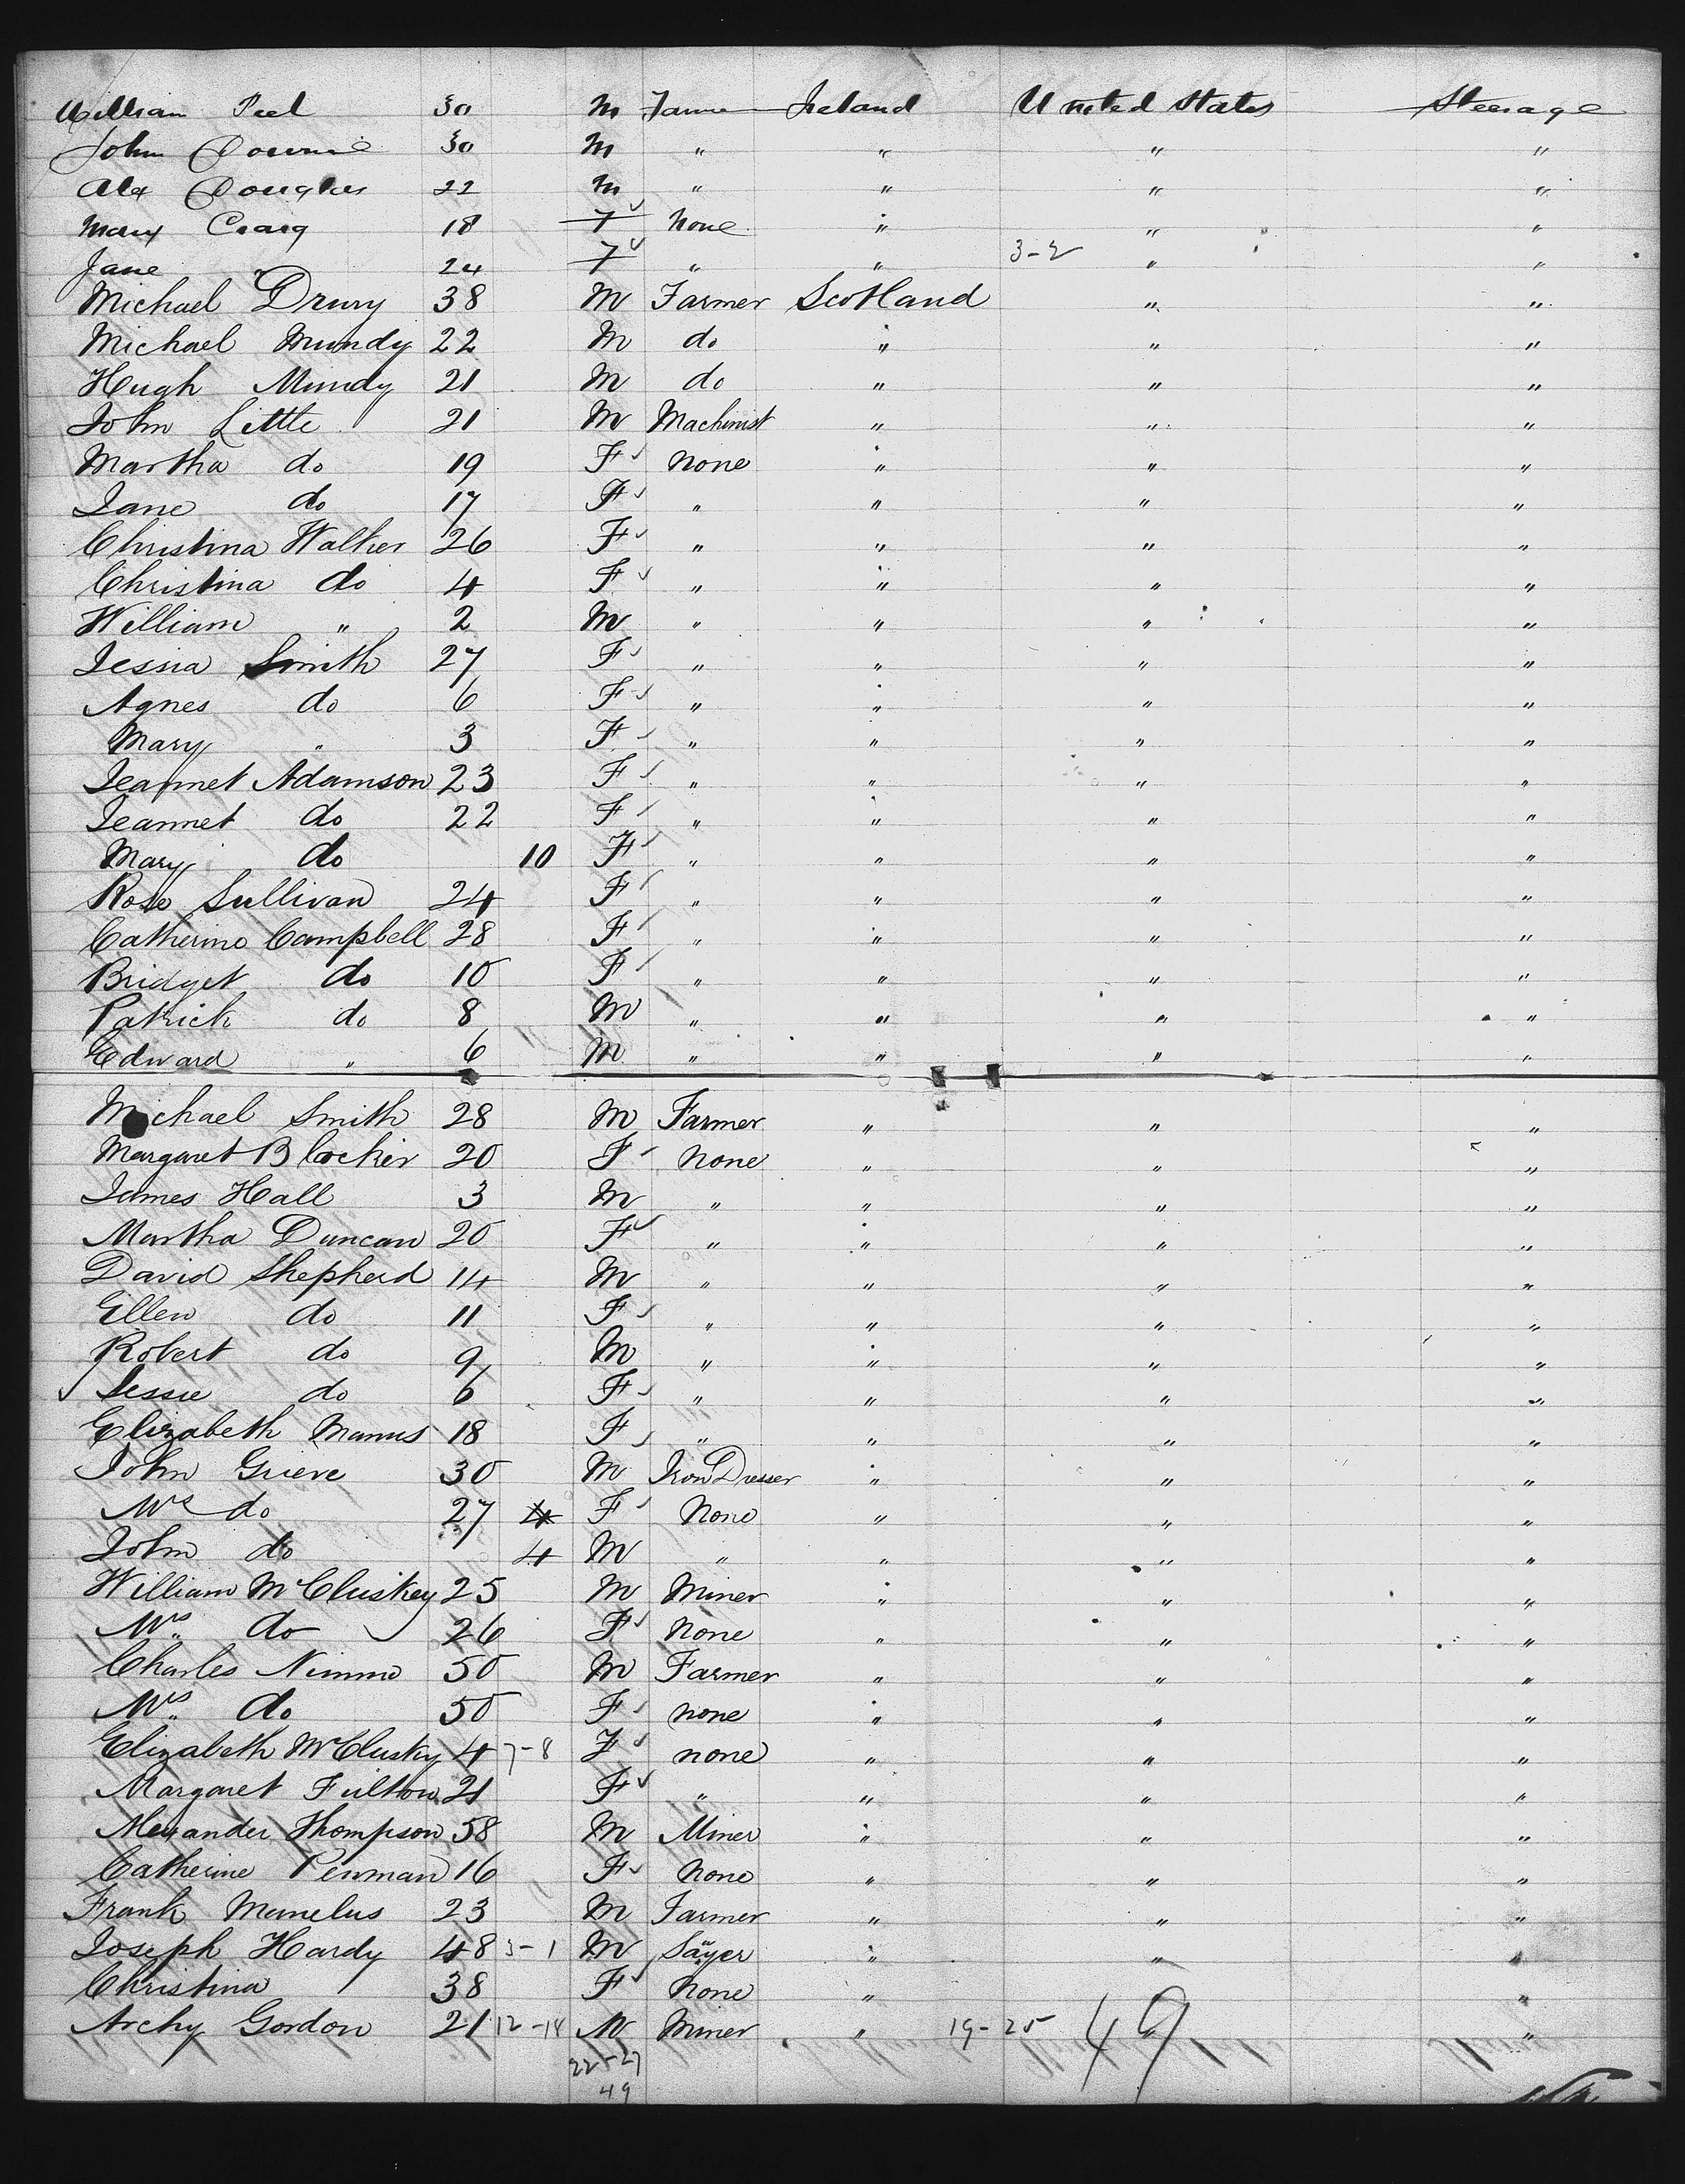 William Peel 30 M Farmer Ireland United States Steerage
John Downie 30 M " " " "
Alex Douglas 22 M " " " "
Mary Craig 18 F None " " "
Jane " 24 F " " 3-2 " "
Michael Drury 38 M Farmer Scotland " "
Michael Mundy 22 M do " " "
Hugh Mundy 21 M do " " "
John Little 21 M Machinist " " "
Martha do 19 F none " " "
Jane do 17 F " " " "
Christina Walker 26 F " " " "
Christina do 4 F " " " "
William " 2 M " " " "
Jessia Smith 27 F " " " "
Agnes do 6 F " " " "
Mary " 3 F " " " "
Jeannet Adamson 23 F " " " "
Jeannet do 22 F " " " "
Mary do 10 F " " " "
Rose Sullivan 24 F " " " "
Catherine Campbell 28 F " " " "
Bridget do 10 F " " " "
Patrick do 8 M " " " "
Edward " 6 M " " " "
Michael Smith 28 M Farmer " " "
Margaret B Cocker 20 F none " " "
James Hall 3 M " " " "
Martha Duncan 20 F " " " "
David Shepherd 14 M " " " "
Ellen do 11 F " " " "
Robert do 9 M " " " "
Jessie do 6 F " " " "
Elizabeth Manus 18 F " " " "
John Grieve 30 M Iron Dresser " " "
Mrs do 27 4 F None " " "
John do 4 M " " " "
William McCluskey 25 M Miner " " "
Mrs do 26 F None " " "
Charles Nimmo 50 M Farmer " " "
Mrs do 50 F none " " "
Elizabeth McClusky 4 7-8 F none " " "
Margaret Fulton 21 F " " " "
Alexander Thompson 58 M Miner " " "
Catherine Penman 16 F None " " "
Frank 23 M Farmer " " "
Joseph Hardy 48 3-1 M " " "
Christina 38 F None " "
Archy Gordon 21 12-14 M Miner " 19-25 49 "
22-27
49